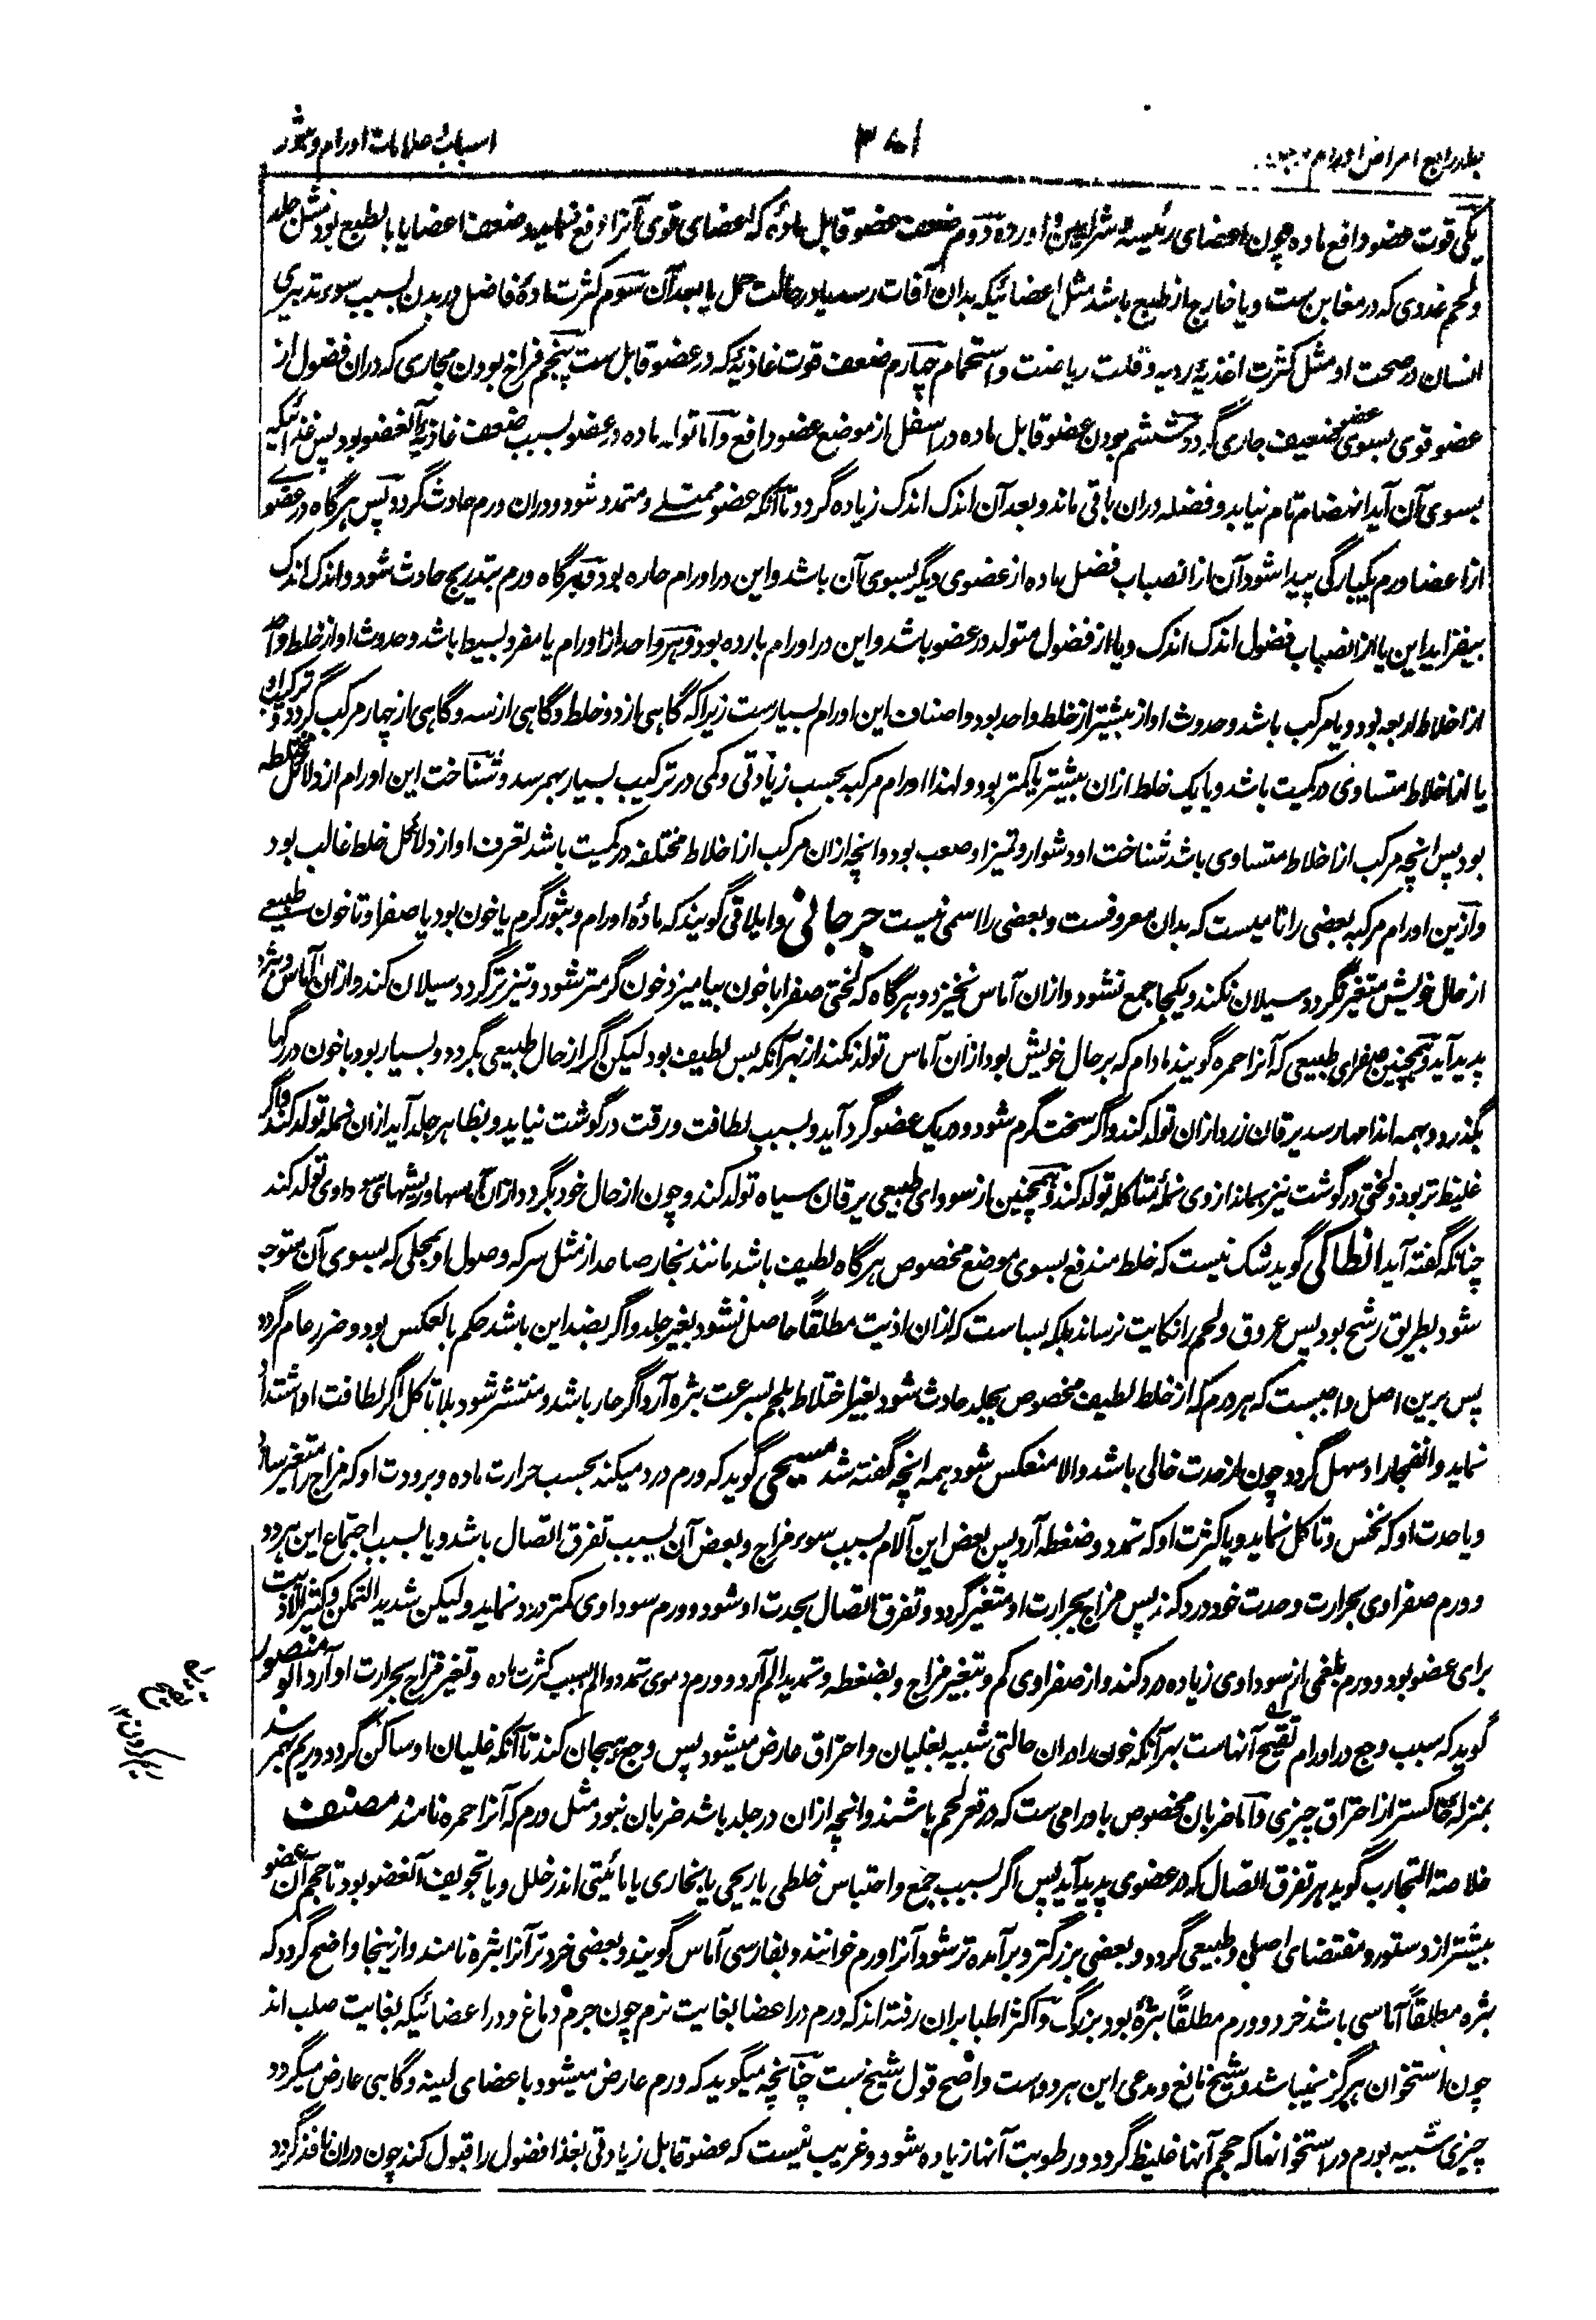 جلد رابع امراض اورام و بثور
۳۸۱
اسباب و علامات اورام و بثور
یکی قوت عضو دافع ماده چون اعضای رئیسه و شرایین و اورده دوم ضعف عضو قابل ماده که اعضای قوی آنرا دفع نمایند و ضعف اعضا یا بالطبع بود مثل جلد
و لحم غددی که در مغابن ست و یا خارج از طبع باشد مثل اعضائیکه بدان آفات رسد یا در حالت حمل یا بعد آن سوم کثرت ماده فاضل در بدن بسبب سوء تدبیری
انسان در صحت او مثل کثرت اغذیهٔ ردیه و قلت ریاضت و استحمام چهارم ضعف قوت غاذیه که در عضو قابل ست پنجم فراخ بودن مجاری که دران فضول از
عضو قوی بسوی عضو ضعیف جاری گردد ششم بودن عضو قابل ماده در اسفل از موضع عضو دافع و اما تولد ماده در عضو بسبب ضعف غاذیهٔ آنعضو بود پس غذائیکه
بسوی آن آید انهضام تام نیابد و فضله دران باقی ماند و بعد آن اندک اندک زیاده گردد تا آنکه عضو ممتلی و متمدد شود و دران ورم حادث گردد پس هرگاه در عضوے
از اعضا ورم یکبارگی پیدا شود آن از انصباب فضل ماده از عضوی دیگر بسوی آن باشد و این در اورام حاره بود و هرگاه ورم بتدریج حادث شود و اندک اندک
بیفزاید این یا از انصباب فضول اندک اندک و یا از فضول متولد در عضو باشد و این در اورام بارده بود و هر واحد از اورام یا مفرد بسیط باشد و حدوث او از خلط واحد
از اخلاط اربعه بود و یا مرکب باشد و حدوث او از بیشتر از خلط واحد بود و اصناف این اورام بسیارست زیرا که گاهی از دو خلط و گاهی از سه و گاهی از چهار مرکب گردد و ترکیب او
یا از اخلاط متساوی در کمیت باشد و یا یک خلط ازان بیشتر یا کمتر بود و لهذا اورام مرکبه بحسب زیادتی و کمی در ترکیب بسیار بهم رسد و شناخت این اورام از دلائل مختلطه
بود پس انچه مرکب از اخلاط متساوی باشد شناخت او دشوار و تمیز او صعب بود و انچه ازان مرکب از اخلاط مختلفه در کمیت باشد تعرف او از دلائل خلط غالب بود
و ازین اورام مرکبه بعضی را نامیست که بدان معروفست و بعضی را اسمی نیست جرجانی و ایلاقی گویند که مادهٔ اورام و بثور گرم یا خون بود یا صفرا و تا خون طبیعے
از حال خویش متغیر نگردد و سیلان نکند و یکجا جمع نشود و ازان آماس نخیزد و هرگاه که لختی صفرا با خون بیامیزد خون گرمتر شود و تیزتر گردد و سیلان کند و ازان آماس و بثره
پدید آید و همچنین صفرای طبیعی که آنرا حمره گویند مادام که بر حال خویش بود ازان آماس تولد نکند از بهر آنکه بس لطیف بود لیکن اگر از حال طبیعی بگردد و بسیار بود با خون در رگها
بگذرد و بهمه اندامها رسد یرقان زرد ازان تولد کند و اگر سخت گرم شود و در یک عضو گرد آید و بسبب لطافت و رقت در گوشت نیاید و بظاهر جلد آید ازان نمله تولد کند و اگر
غلیظ تر بود و لختی در گوشت نیز بماند از وی نملهٔ متاکله تولد کند و همچنین از سودای طبیعی یرقان سیاه تولد کند و چون از حال خود بگردد ازان آماسها و ریشهای سوداوی تولد کند
چنانکه گفته آید انطاکی گوید شک نیست که خلط مندفع بسوی موضع مخصوص هرگاه لطیف باشد مانند بخار صاعد از مثل سرکه وصول او بمحلی که بسوی آن متوجه
شود بطریق رشح بود پس عروق و لحم را نکایت نرساند بلکه بساست که ازان اذیت مطلقاً حاصل نشود بغیر جلد و اگر بضد این باشد حکم بالعکس بود و ضرر عام گردد
پس برین اصل واجبست که هر ورم که از خلط لطیف مخصوص بجلد حادث شود بغیر اختلاط بلحم بسرعت بثره آرد اگر حار باشد و منتشر شود بلا تاکل اگر لطافت او اشتداد
نماید و انفجار او سهل گردد چون از حدت خالی باشد و الا منعکس شود همه انچه گفته شد مسیحی گوید که ورم درد میکند بحسب حرارت ماده و برودت او که مزاج را متغیر سازد
و یا حدت او که نخس و تاکل نماید و یا کثرت او که تمدد و ضغطه آرد پس بعض این آلام بسبب سوء مزاج و بعض آن بسبب تفرق اتصال باشد و یا بسبب اجتماع این هر دو
و ورم صفراوی بحرارت و حدت خود درد کند پس مزاج بحرارت او متغیر گردد و تفرق اتصال بحدت او شود و ورم سوداوی کمتر درد نماید و لیکن شدید التمکن و کثیر الاذیت
برای عضو بود و ورم بلغمی از سوداوی زیاده درد کند و از صفراوی کم و بتغیر مزاج و بضغطه و تمدید الم آرد و ورم دموی تمدد و الم بسبب کثرت ماده و تغیر مزاج بحرارت او آرد ابو منصور
گوید که سبب وجع در اورام تقیح آنهاست بهر آنکه خون را دران حالتی شبیه بغلیان و احتراق عارض میشود پس وجع هیجان کند تا آنکه غلیان او ساکن گردد و ریم بهم رسد
بمنزلهٔ خاکستر از احتراق چیزی و اما ضربان مخصوص باورامی ست که در قعر لحم باشند و انچه ازان در جلد باشد ضربان نبود مثل ورم که آنرا حمره نامند مصنف
خلاصة التجارب گوید هر تفرق اتصال که در عضوی پدید آید پس اگر بسبب جمع و احتباس خلطی یا ریحی یا بخاری یا مائیتی اندر خلل و یا تجویف آنعضو بود تا حجم آن عضو
بیشتر از دستور و مقتضای اصلی و طبیعی گردد و بعضی بزرگتر و برآمده تر شود آنرا ورم خوانند و بفارسی آماس گویند و بعضی خردتر آنرا بثره نامند و ازینجا واضح گردد که
بثره مطلقاً آماسی باشد خرد و ورم مطلقاً بثرهٔ بود بزرگ و اکثر اطبا بران رفته اند که ورم در اعضا بغایت نرم چون جرم دماغ و در اعضائیکه بغایت صلب اند
چون استخوان هرگز نمیباشد و شیخ مانع و مدعی این هر دو است و اصح قول شیخ ست چنانچه میگوید که ورم عارض میشود باعضای لینه و گاهی عارض میگردد
چیزی شبیه بورم در استخوانها که حجم آنها غلیظ گردد و رطوبت آنها زیاده شود و غریب نیست که عضو قابل زیادتی بغذا فضول را قبول کند چون دران نافذ گردد